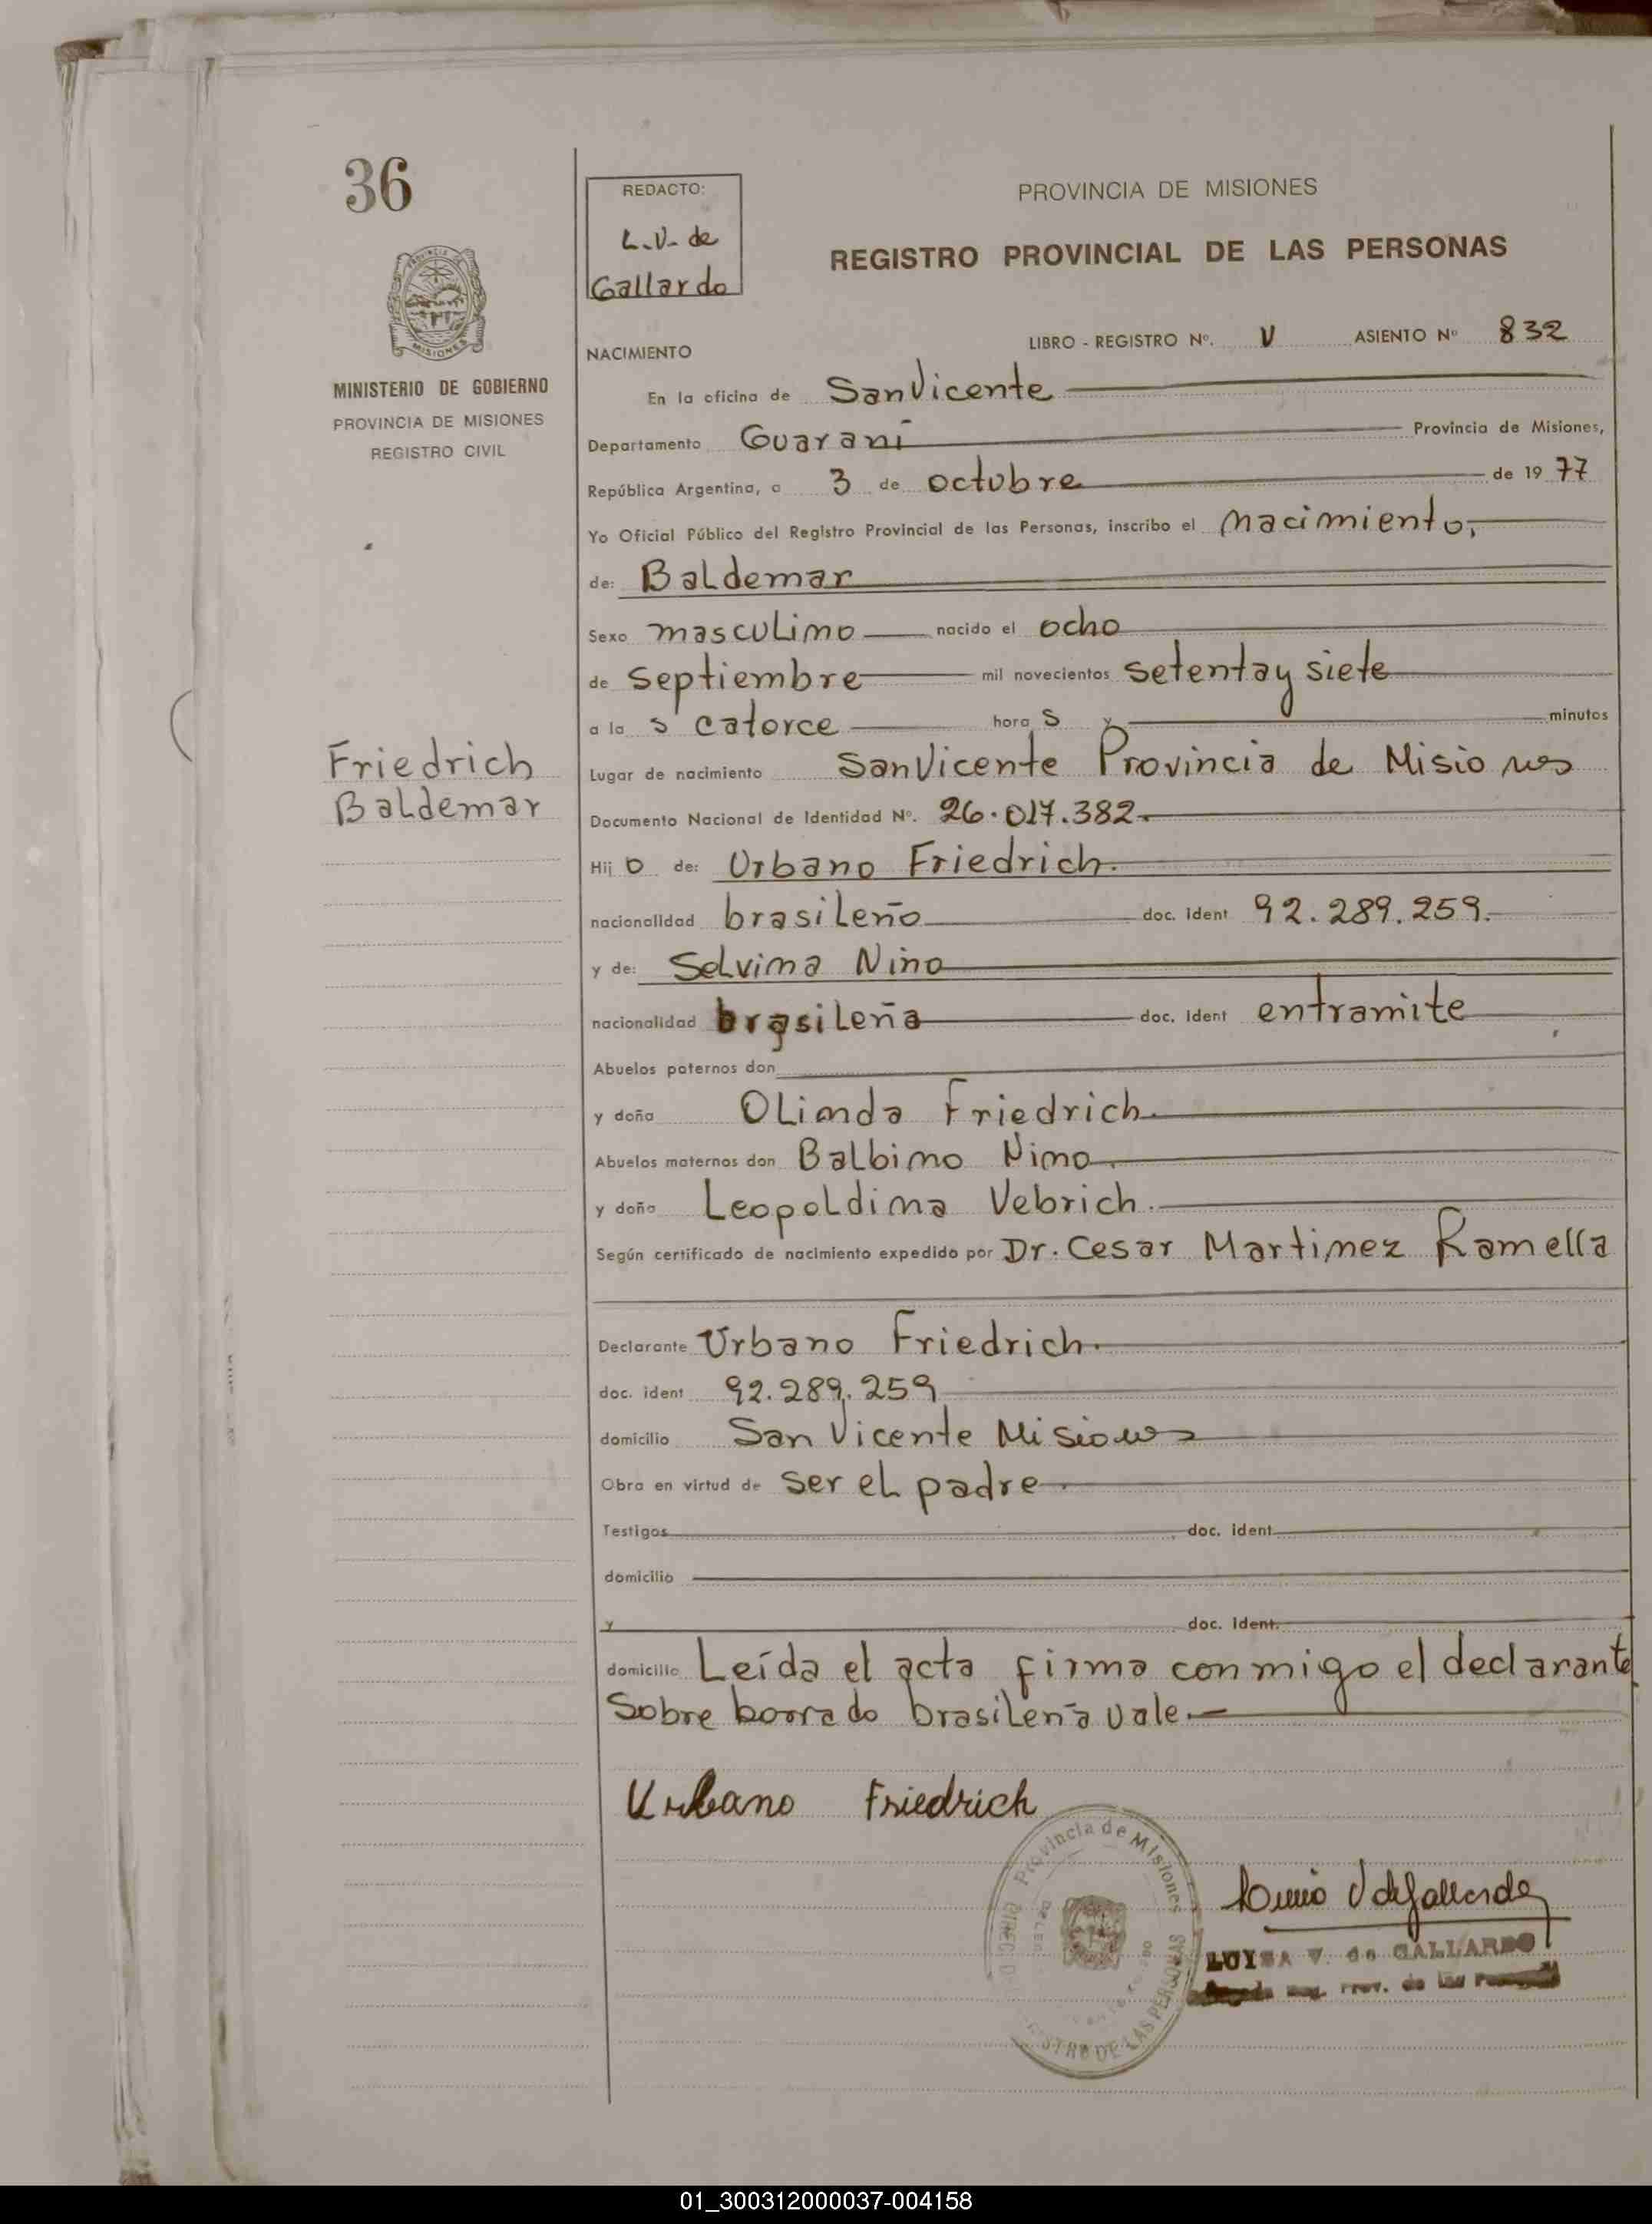 36
REDACTO:
L.V. de
Gallardo
PROVINCIA DE MISIONES
REGISTRO PROVINCIAL DE LAS PERSONAS
MISIONES
MINISTERIO DE GOBIERNO
PROVINCIA DE MISIONES
REGISTRO CIVIL
NACIMIENTO
LIBRO - REGISTRO Nº. V ASIENTO Nº 832
En la oficina de San Vicente
Departamento Guaraní Provincia de Misiones,
República Argentina, a 3 de octubre de 1977
Yo Oficial Público del Registro Provincial de las Personas, inscribo el nacimiento,
de: Baldemar
Sexo masculino nacido el ocho
de Septiembre mil novecientos setenta y siete
a la s catorce hora s y minutos
Friedrich
Baldemar
Lugar de nacimiento San Vicente Provincia de Misiones
Documento Nacional de Identidad Nº. 26.017.382.
Hij o de: Urbano Friedrich.
nacionalidad brasileño doc. ident 92.289.259.
y de: Selvina Nino
nacionalidad brasileña doc. ident entramite
Abuelos paternos don
y doña Olinda Friedrich.
Abuelos maternos don Balbino Nino.
y doña Leopoldina Vebrich.
Según certificado de nacimiento expedido por Dr. Cesar Martinez Ramella
Declarante Urbano Friedrich.
doc. ident 92.289.259
domicilio San Vicente Misiones
Obra en virtud de ser el padre.
Testigos doc. ident
domicilio
y doc. ident.
domicilio Leída el acta firma conmigo el declarante
Sobre borrado brasileña vale.
Urbano Friedrich
Provincia de Misiones
DE LAS PERSONAS
LUISA V. de GALLARDO
Prov. de las
01_300312000037-004158